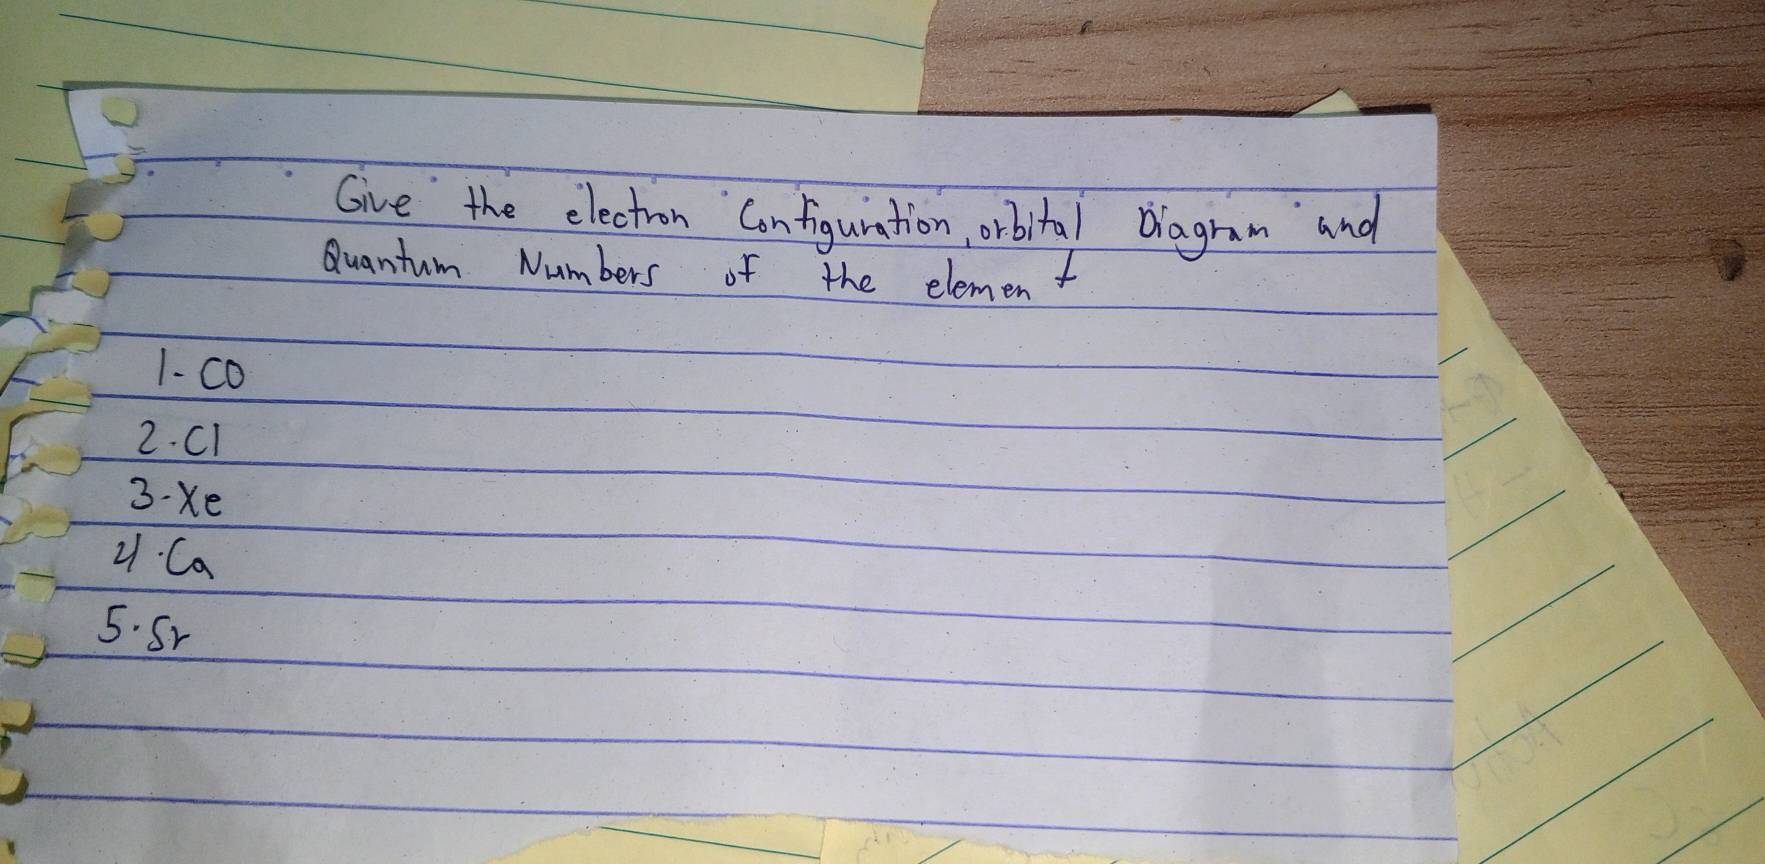 Give the electron Configuration, orbital Diagram and
Quantum Numbers of the element
1- CO
2. Cl
3- Xe
4. Ca
5. Sr